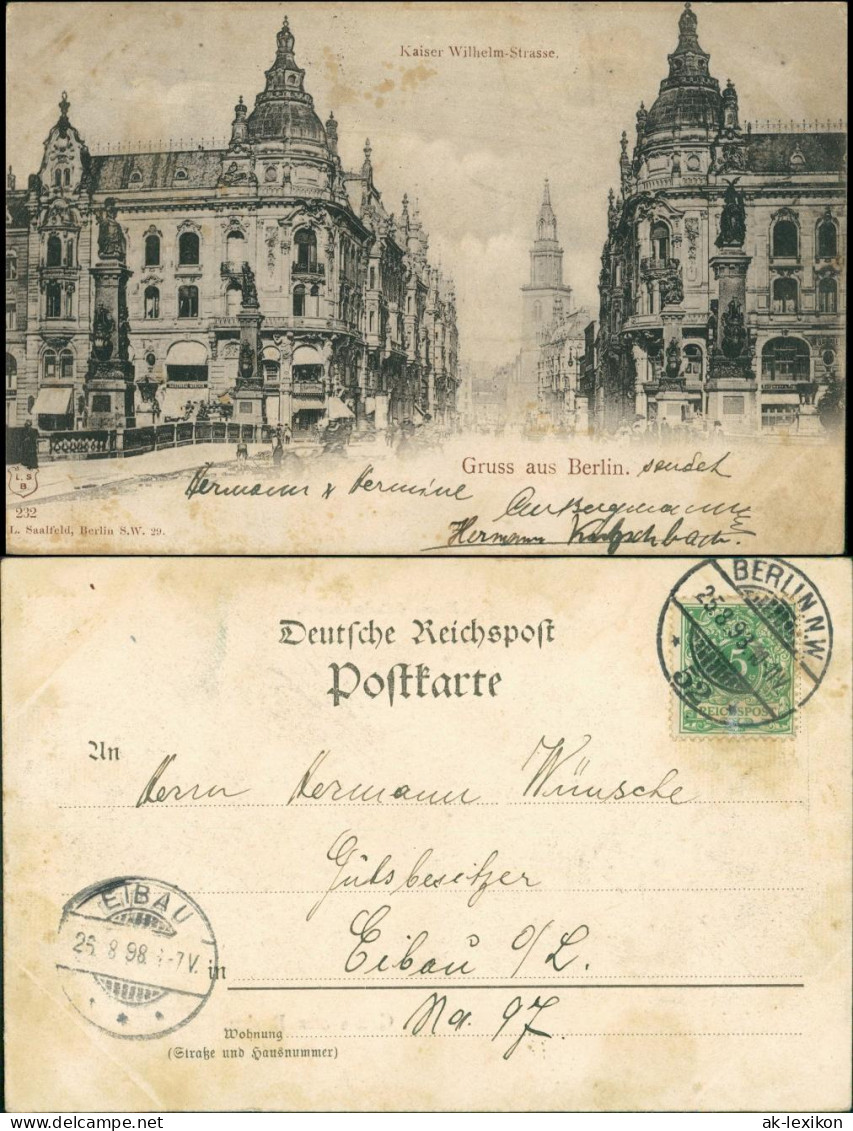 Kaiser Wilhelm-Strasse.
Gruss aus Berlin. sendet
Hermann & Hermine
L. S.
B.
232
L. Saalfeld, Berlin S.W. 29.
Hermann
BERLIN N.W.
25.8.98.
52
Deutsche Reichspost
Postkarte
5
REICHSPOST
An
Herrn Hermann Wünsche
Gutsbesitzer
EIBAU
26. 8 98. -7V.
in Eibau o/L.
No. 97
Wohnung
(Straße und Hausnummer)
ak-lexikon